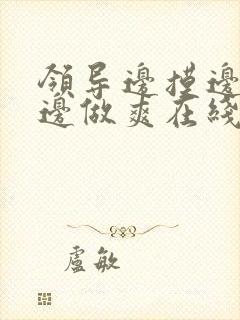 領导邊摸邊
邊做爽在綫
盧敏